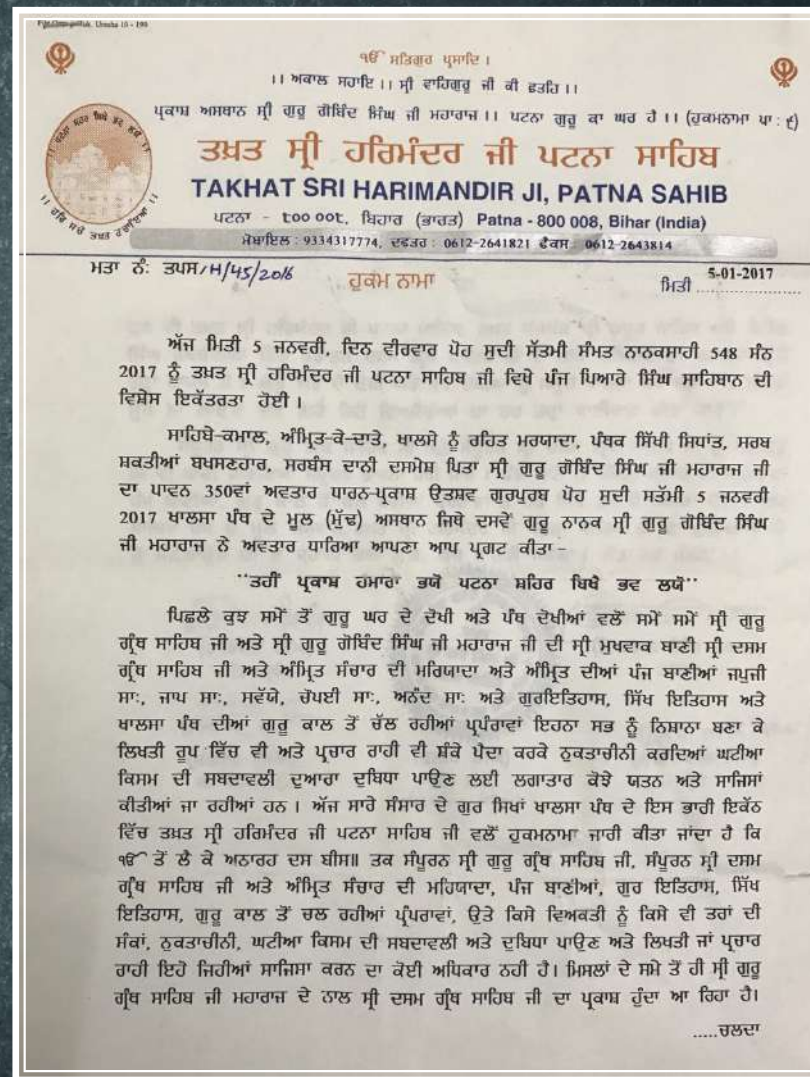 ੴ ਸਤਿਗੁਰ ਪ੍ਰਸਾਦਿ ।
।। ਅਕਾਲ ਸਹਾਇ ।। ਸ੍ਰੀ ਵਾਹਿਗੁਰੂ ਜੀ ਕੀ ਫਤਹਿ ।।
ਪ੍ਰਕਾਸ਼ ਅਸਥਾਨ ਸ੍ਰੀ ਗੁਰੂ ਗੋਬਿੰਦ ਸਿੰਘ ਜੀ ਮਹਾਰਾਜ ।। ਪਟਨਾ ਗੁਰੂ ਕਾ ਘਰ ਹੈ ।। (ਹੁਕਮਨਾਮਾ ਪਾ : ੯)
ਤਖ਼ਤ ਸ੍ਰੀ ਹਰਿਮੰਦਰ ਜੀ ਪਟਨਾ ਸਾਹਿਬ
TAKHAT SRI HARIMANDIR JI, PATNA SAHIB
ਪਟਨਾ - ੮੦੦ ੦੦੮, ਬਿਹਾਰ (ਭਾਰਤ) Patna - 800 008, Bihar (India)
ਮੋਬਾਇਲ : 9334317774, ਦਫਤਰ : 0612-2641821 ਫੈਕਸ 0612-2643814
ਮਤਾ ਨੰ: ਤਪਸ/H/45/2016 ਹੁਕਮ ਨਾਮਾ ਮਿਤੀ 5-01-2017
ਅੱਜ ਮਿਤੀ 5 ਜਨਵਰੀ, ਦਿਨ ਵੀਰਵਾਰ ਪੋਹ ਸੁਦੀ ਸੱਤਮੀ ਸੰਮਤ ਨਾਨਕਸਾਹੀ 548 ਸੰਨ
2017 ਨੂੰ ਤਖ਼ਤ ਸ੍ਰੀ ਹਰਿਮੰਦਰ ਜੀ ਪਟਨਾ ਸਾਹਿਬ ਜੀ ਵਿਖੇ ਪੰਜ ਪਿਆਰੇ ਸਿੰਘ ਸਾਹਿਬਾਨ ਦੀ
ਵਿਸ਼ੇਸ ਇਕੱਤਰਤਾ ਹੋਈ ।
ਸਾਹਿਬੇ-ਕਮਾਲ, ਅੰਮ੍ਰਿਤ-ਕੇ-ਦਾਤੇ, ਖਾਲਸੇ ਨੂੰ ਰਹਿਤ ਮਰਯਾਦਾ, ਪੰਥਕ ਸਿੱਖੀ ਸਿਧਾਂਤ, ਸਰਬ
ਸ਼ਕਤੀਆਂ ਬਖਸਣਹਾਰ, ਸਰਬੰਸ ਦਾਨੀ ਦਸਮੇਸ਼ ਪਿਤਾ ਸ੍ਰੀ ਗੁਰੂ ਗੋਬਿੰਦ ਸਿੰਘ ਜੀ ਮਹਾਰਾਜ ਜੀ
ਦਾ ਪਾਵਨ 350ਵਾਂ ਅਵਤਾਰ ਧਾਰਨ-ਪ੍ਰਕਾਸ਼ ਉਤਸ਼ਵ ਗੁਰਪੁਰਬ ਪੋਹ ਸੁਦੀ ਸਤੱਮੀ 5 ਜਨਵਰੀ
2017 ਖਾਲਸਾ ਪੰਥ ਦੇ ਮੂਲ (ਮੁੱਢ) ਅਸਥਾਨ ਜਿਥੇ ਦਸਵੇਂ ਗੁਰੂ ਨਾਨਕ ਸ੍ਰੀ ਗੁਰੂ ਗੋਬਿੰਦ ਸਿੰਘ
ਜੀ ਮਹਾਰਾਜ ਨੇ ਅਵਤਾਰ ਧਾਰਿਆ ਆਪਣਾ ਆਪ ਪ੍ਰਗਟ ਕੀਤਾ -
"ਤਹੀਂ ਪ੍ਰਕਾਸ਼ ਹਮਾਰਾ ਭਯੋ ਪਟਨਾ ਸ਼ਹਿਰ ਬਿਖੈ ਭਵ ਲਯੋ"
ਪਿਛਲੇ ਕੁਝ ਸਮੇਂ ਤੋਂ ਗੁਰੂ ਘਰ ਦੇ ਦੋਖੀ ਅਤੇ ਪੰਥ ਦੋਖੀਆਂ ਵਲੋਂ ਸਮੇਂ ਸਮੇਂ ਸ੍ਰੀ ਗੁਰੂ
ਗ੍ਰੰਥ ਸਾਹਿਬ ਜੀ ਅਤੇ ਸ੍ਰੀ ਗੁਰੂ ਗੋਬਿੰਦ ਸਿੰਘ ਜੀ ਮਹਾਰਾਜ ਜੀ ਦੀ ਸ੍ਰੀ ਮੁਖਵਾਕ ਬਾਣੀ ਸ੍ਰੀ ਦਸਮ
ਗ੍ਰੰਥ ਸਾਹਿਬ ਜੀ ਅਤੇ ਅੰਮ੍ਰਿਤ ਸੰਚਾਰ ਦੀ ਮਰਿਯਾਦਾ ਅਤੇ ਅੰਮ੍ਰਿਤ ਦੀਆਂ ਪੰਜ ਬਾਣੀਆਂ ਜਪੁਜੀ
ਸਾ:, ਜਾਪ ਸਾ:, ਸਵੱਯੇ, ਚੋਪਈ ਸਾ:, ਅਨੰਦ ਸਾ: ਅਤੇ ਗੁਰਇਤਿਹਾਸ, ਸਿੱਖ ਇਤਿਹਾਸ ਅਤੇ
ਖਾਲਸਾ ਪੰਥ ਦੀਆਂ ਗੁਰੂ ਕਾਲ ਤੋਂ ਚੱਲ ਰਹੀਆਂ ਪ੍ਰਪੰਰਾਵਾਂ ਇਹਨਾ ਸਭ ਨੂੰ ਨਿਸ਼ਾਨਾ ਬਣਾ ਕੇ
ਲਿਖਤੀ ਰੂਪ ਵਿੱਚ ਵੀ ਅਤੇ ਪ੍ਰਚਾਰ ਰਾਹੀ ਵੀ ਸ਼ੰਕੇ ਪੈਦਾ ਕਰਕੇ ਨੁਕਤਾਚੀਨੀ ਕਰਦਿਆਂ ਘਟੀਆ
ਕਿਸਮ ਦੀ ਸਬਦਾਵਲੀ ਦੁਆਰਾ ਦੁਬਿਧਾ ਪਾਉਣ ਲਈ ਲਗਾਤਾਰ ਕੋਝੇ ਯਤਨ ਅਤੇ ਸਾਜਿਸਾਂ
ਕੀਤੀਆਂ ਜਾ ਰਹੀਆਂ ਹਨ । ਅੱਜ ਸਾਰੇ ਸੰਸਾਰ ਦੇ ਗੁਰ ਸਿਖਾਂ ਖਾਲਸਾ ਪੰਥ ਦੇ ਇਸ ਭਾਰੀ ਇਕੱਠ
ਵਿੱਚ ਤਖ਼ਤ ਸ੍ਰੀ ਹਰਿਮੰਦਰ ਜੀ ਪਟਨਾ ਸਾਹਿਬ ਜੀ ਵਲੋਂ ਹੁਕਮਨਾਮਾ ਜਾਰੀ ਕੀਤਾ ਜਾਂਦਾ ਹੈ ਕਿ
ੴ ਤੋਂ ਲੈ ਕੇ ਅਠਾਰਹ ਦਸ ਬੀਸ॥ ਤਕ ਸੰਪੂਰਨ ਸ੍ਰੀ ਗੁਰੂ ਗ੍ਰੰਥ ਸਾਹਿਬ ਜੀ, ਸੰਪੂਰਨ ਸ੍ਰੀ ਦਸਮ
ਗ੍ਰੰਥ ਸਾਹਿਬ ਜੀ ਅਤੇ ਅੰਮ੍ਰਿਤ ਸੰਚਾਰ ਦੀ ਮਹਿਯਾਦਾ, ਪੰਜ ਬਾਣੀਆਂ, ਗੁਰ ਇਤਿਹਾਸ, ਸਿੱਖ
ਇਤਿਹਾਸ, ਗੁਰੂ ਕਾਲ ਤੋਂ ਚਲ ਰਹੀਆਂ ਪ੍ਰੰਪਰਾਵਾਂ, ਉਤੇ ਕਿਸੇ ਵਿਅਕਤੀ ਨੂੰ ਕਿਸੇ ਵੀ ਤਰਾਂ ਦੀ
ਸੰਕਾਂ, ਨੁਕਤਾਚੀਨੀ, ਘਟੀਆ ਕਿਸਮ ਦੀ ਸਬਦਾਵਲੀ ਅਤੇ ਦੁਬਿਧਾ ਪਾਉਣ ਅਤੇ ਲਿਖਤੀ ਜਾਂ ਪ੍ਰਚਾਰ
ਰਾਹੀ ਇਹੋ ਜਿਹੀਆਂ ਸਾਜਿਸਾ ਕਰਨ ਦਾ ਕੋਈ ਅਧਿਕਾਰ ਨਹੀ ਹੈ। ਮਿਸਲਾਂ ਦੇ ਸਮੇ ਤੋਂ ਹੀ ਸ੍ਰੀ ਗੁਰੂ
ਗ੍ਰੰਥ ਸਾਹਿਬ ਜੀ ਮਹਾਰਾਜ ਦੇ ਨਾਲ ਸ੍ਰੀ ਦਸਮ ਗ੍ਰੰਥ ਸਾਹਿਬ ਜੀ ਦਾ ਪ੍ਰਕਾਸ਼ ਹੁੰਦਾ ਆ ਰਿਹਾ ਹੈ।
.....ਚਲਦਾ